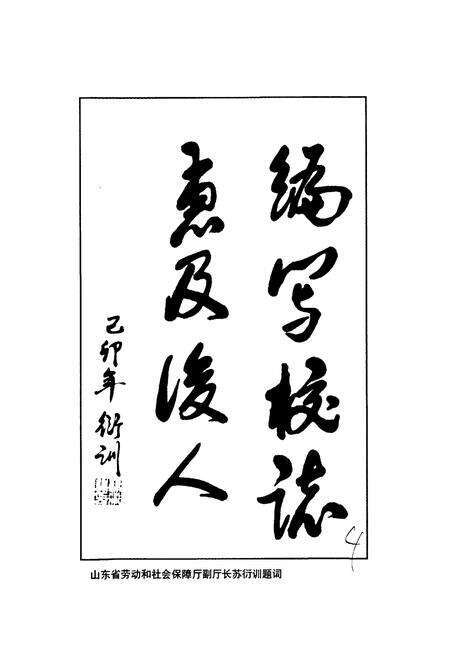 编写校誌
惠及後人
己卯年 衍训
4
山东省劳动和社会保障厅副厅长苏衍训题词